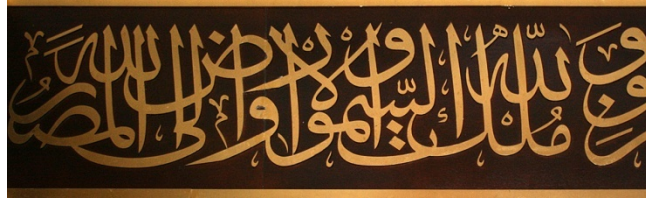 ولله ملك السموات والارض والى الله المصير